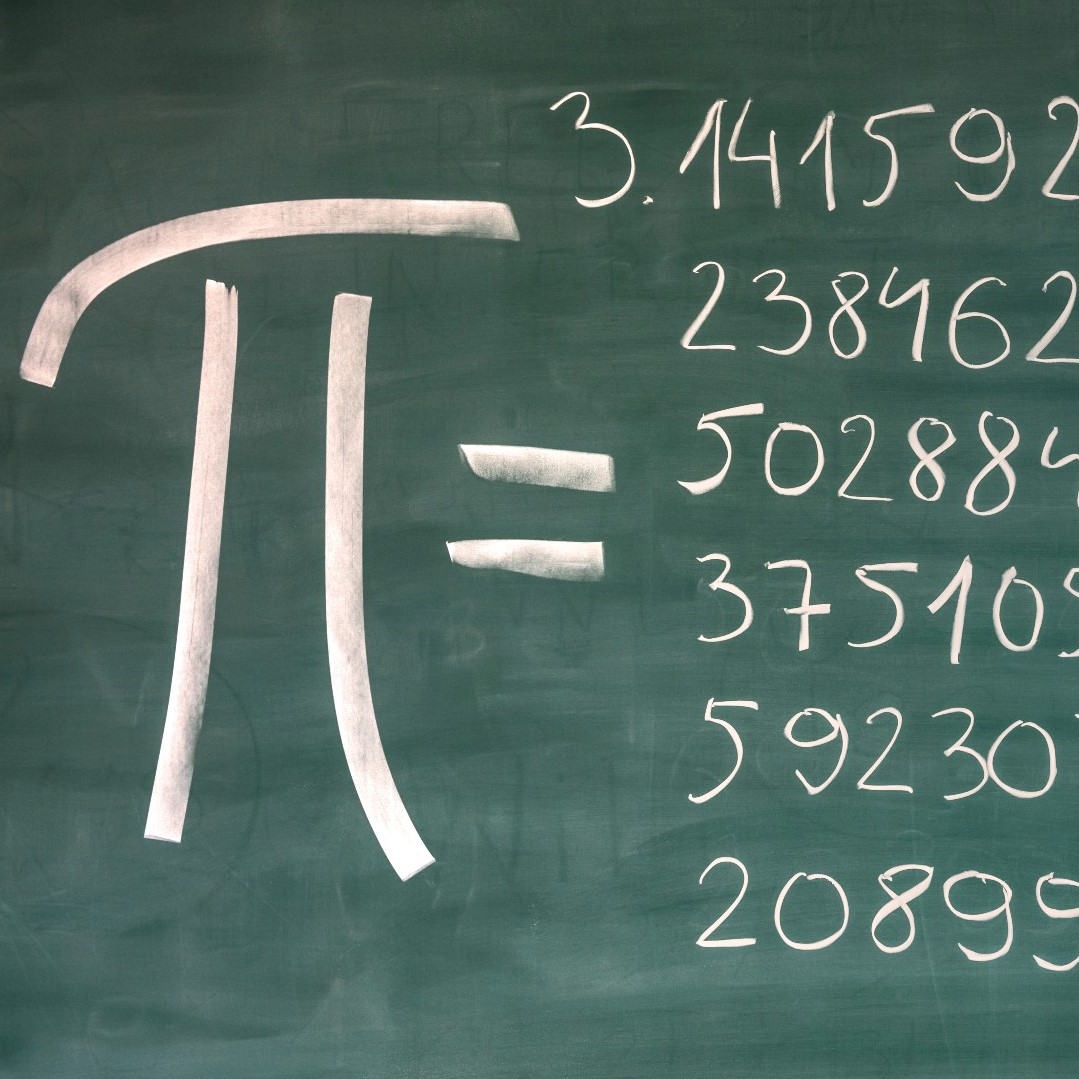 3.141592
238462
π =
502884
375105
59230
20899